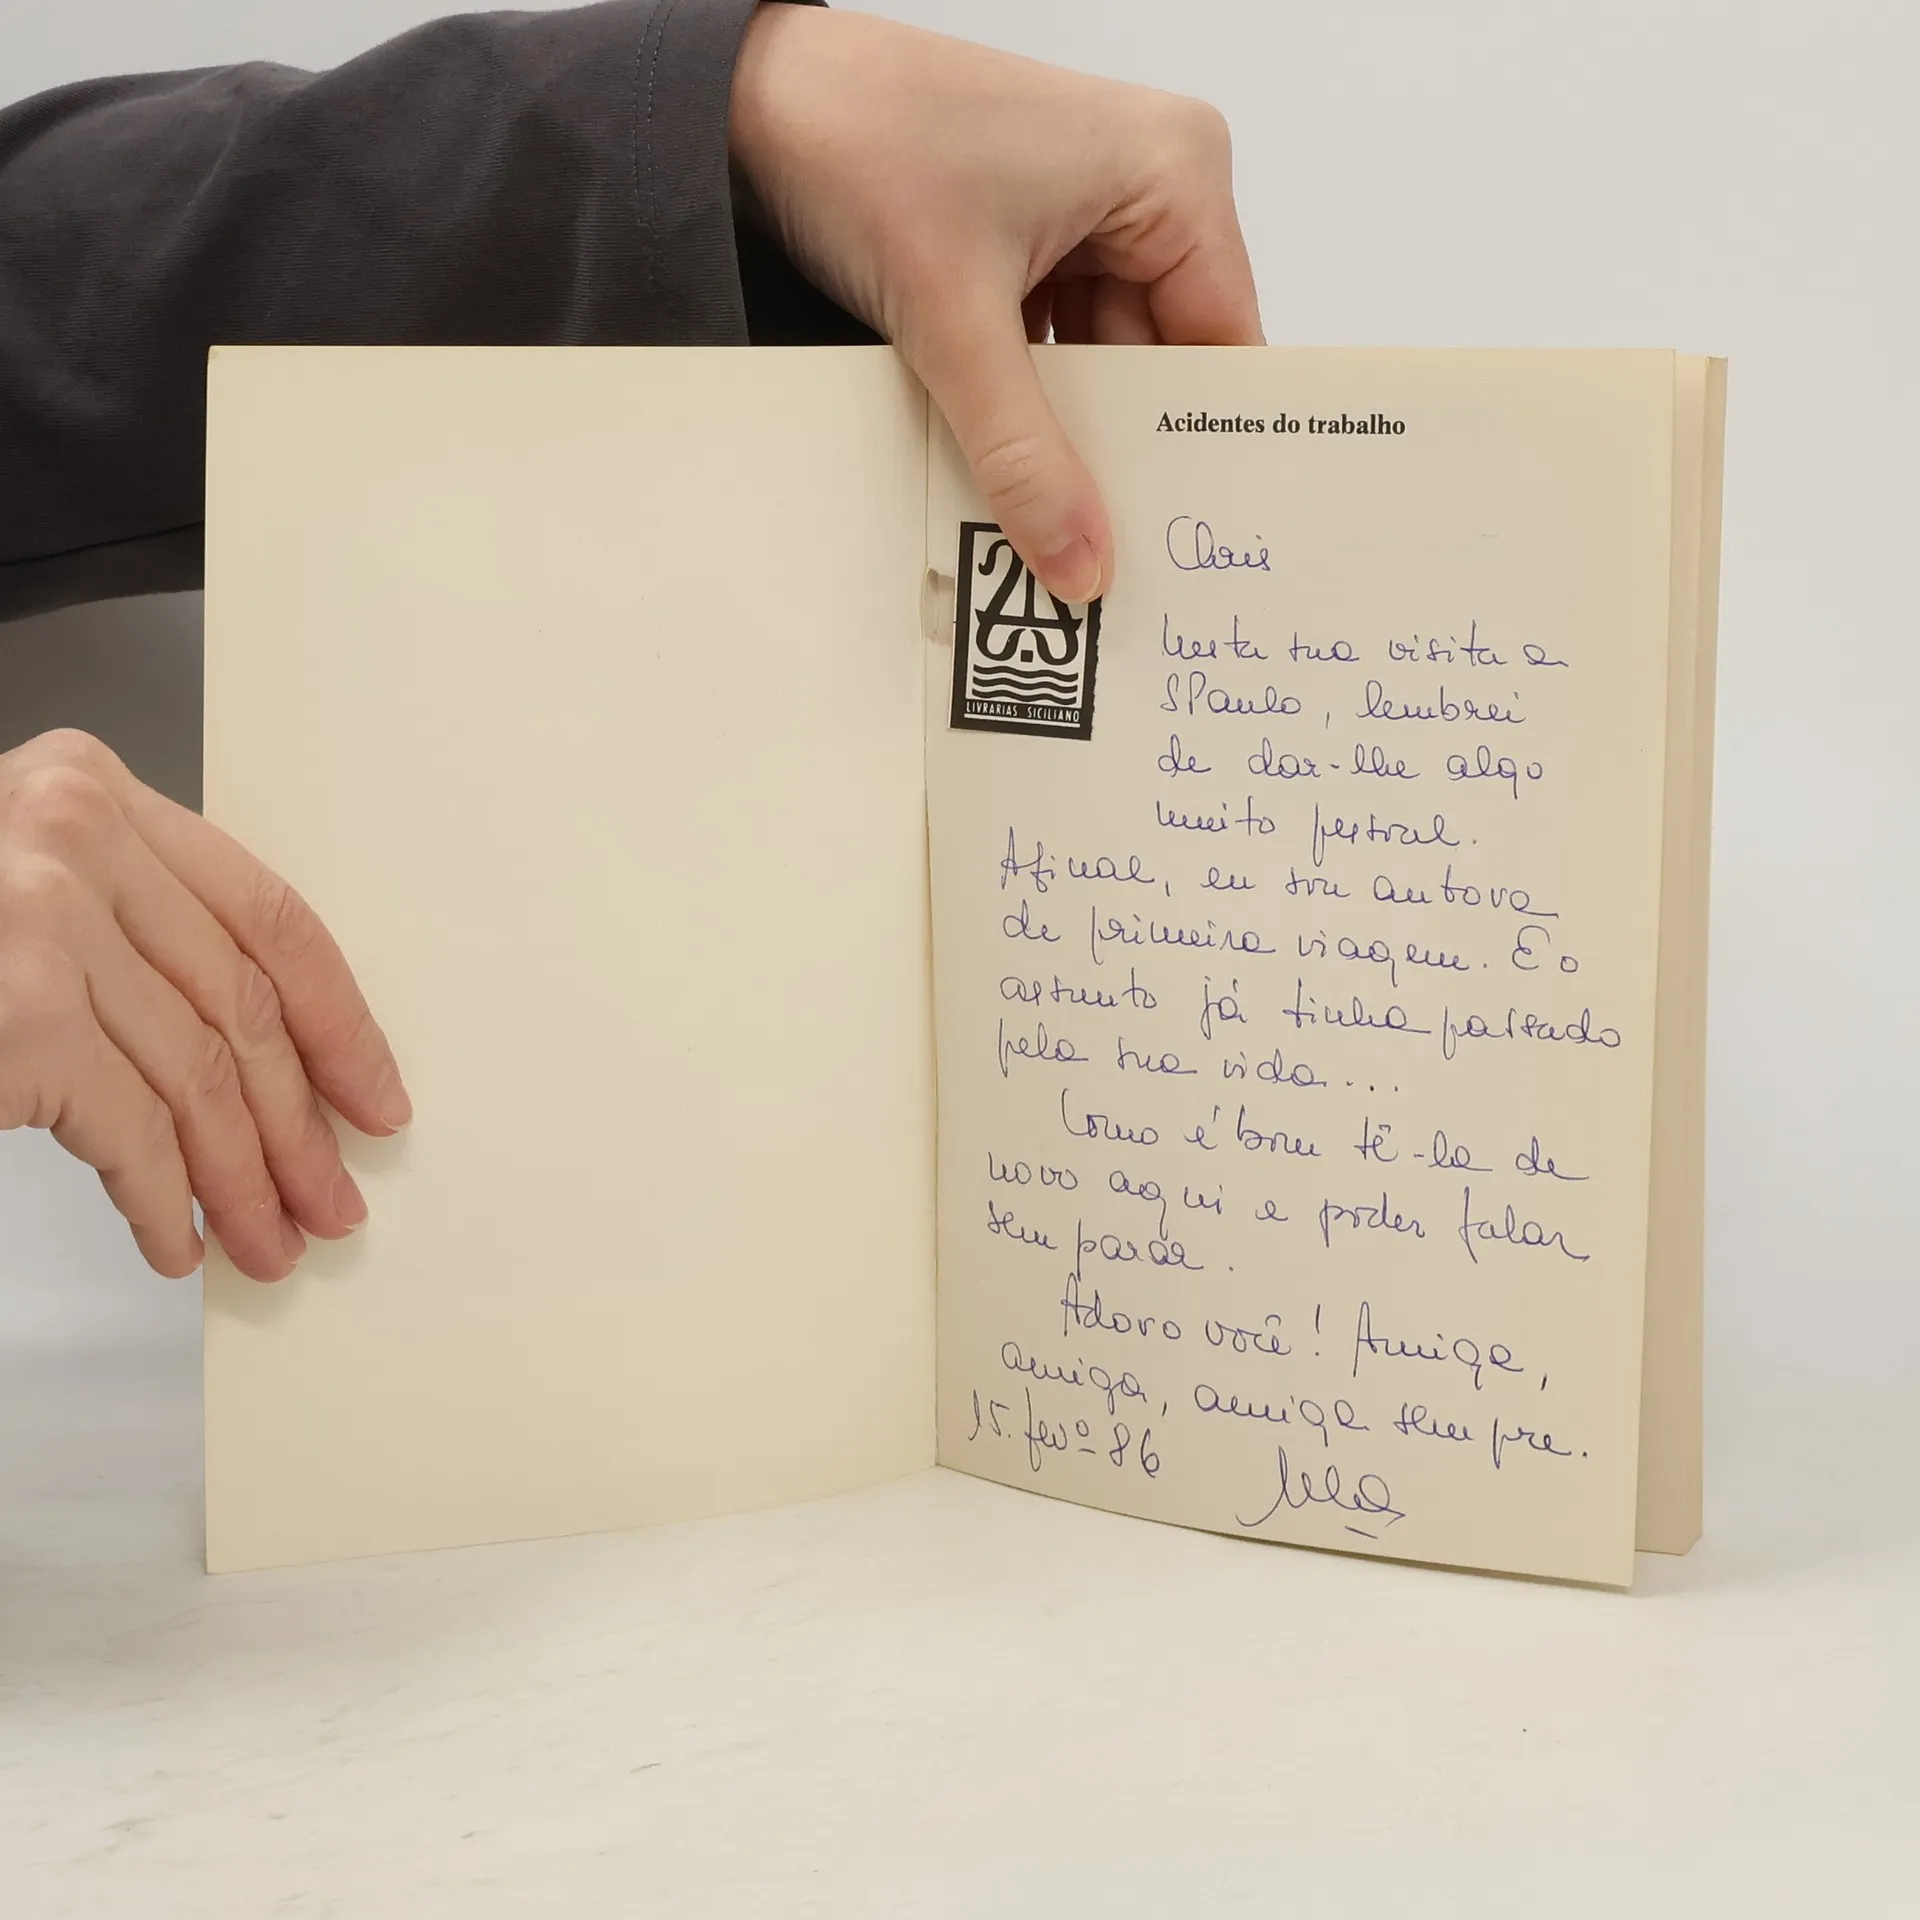 Acidentes do trabalho
LIVRARIAS SICILIANO
Chris
Nesta sua visita a
SPaulo, lembrei
de dar-lhe algo
muito pessoal.
Afinal, eu sou autora
de primeira viagem. E o
assunto já tinha passado
pela sua vida...
Como é bom tê-la de
novo aqui e poder falar
sem parar.
Adoro você! Amiga,
amiga, amiga sempre.
15. fevº 86